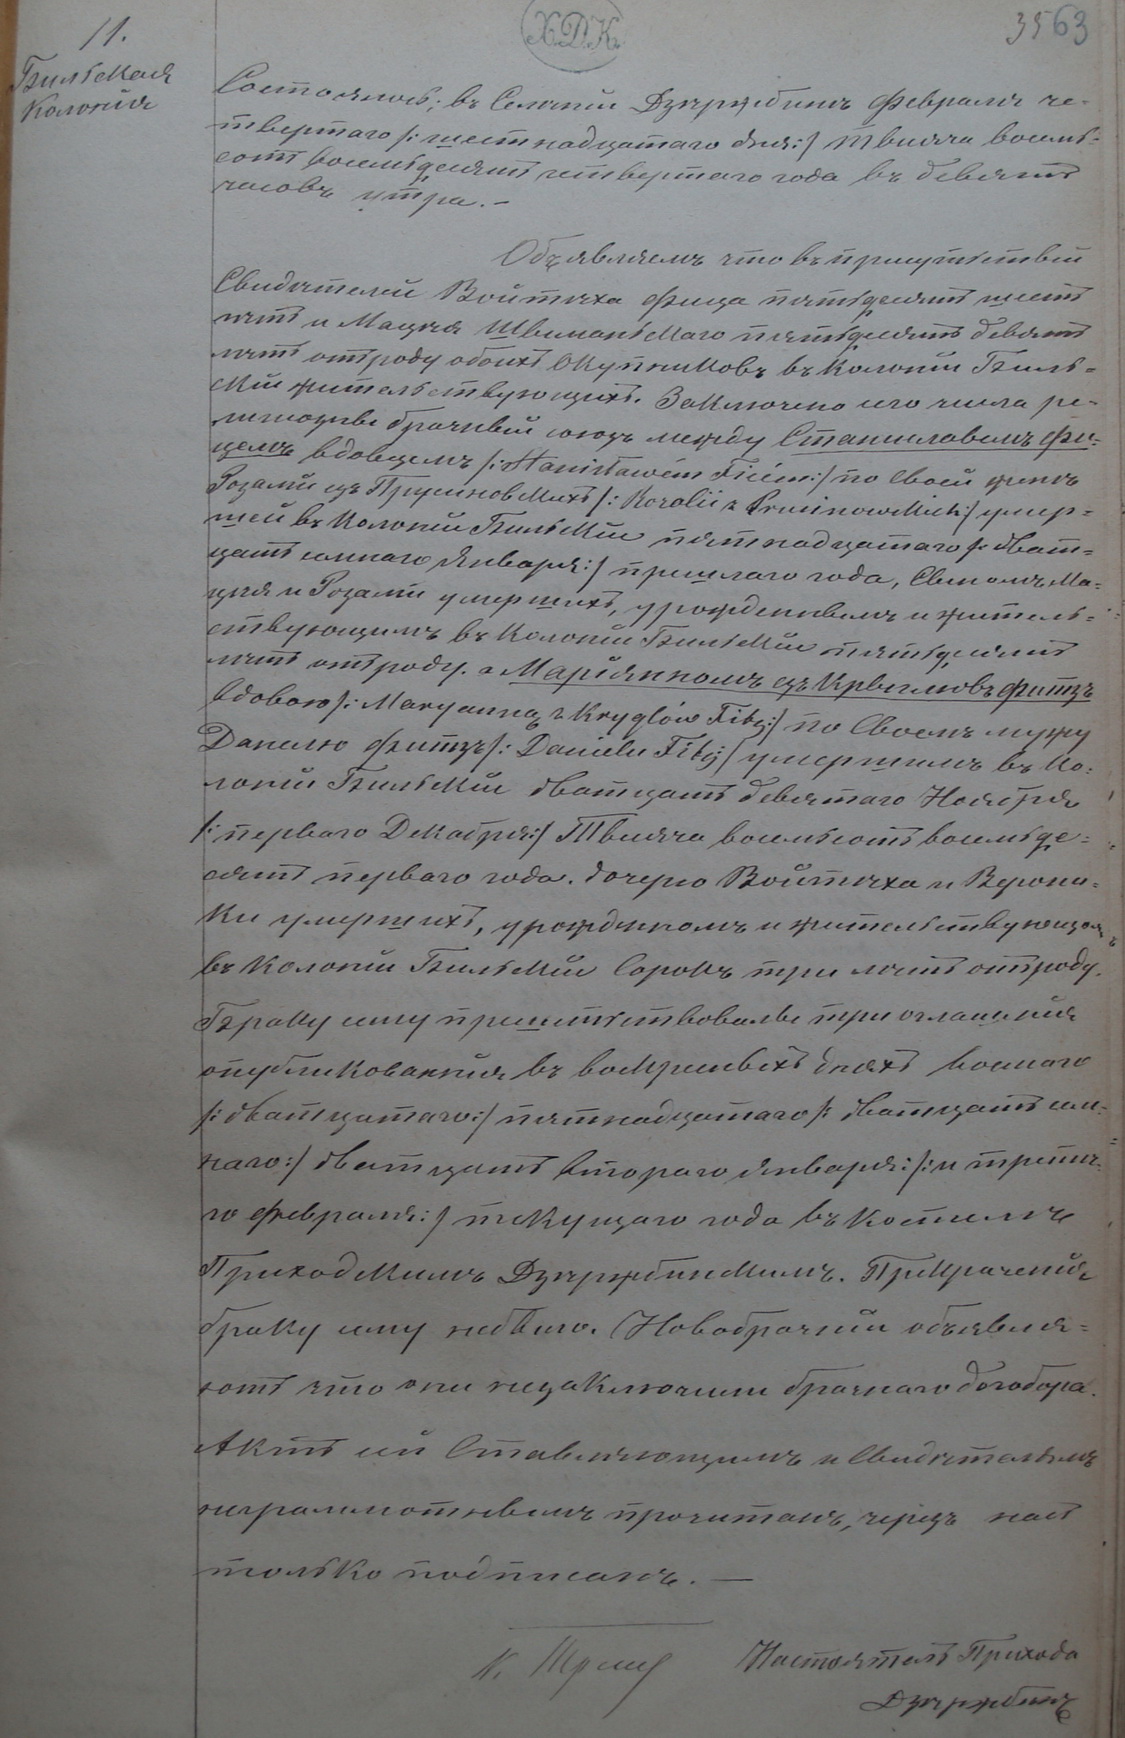 11.
Х.Д.К.
3563
Бильская
Колонія
Состоялось; въ Селеніи Дзержбинъ февраля че-
твертаго /: шестнадцатаго дня :/ тысяча восемь-
сотъ восемьдесятъ четвертаго года въ девять
часовъ утра. –
Объявляемъ что въ присутствіи
Свидѣтелей Войтѣха Фица пятьдесятъ шесть
лѣтъ и Мацея пятьдесятъ девять
лѣтъ отъ роду обоихъ окупниковъ въ Колоніи Биль-
скій жительствующихъ. Заключено сего числа ре-
лигіозный брачный союзъ между Станиславомъ Фи-
цемъ вдовцемъ /: Stanisławem Ficem :/ по своей женѣ
Розаліи изъ Прусиновскихъ /: Rozolii z Prusinowskich :/ умер-
шей въ Колоніи Бильскій пятнадцатаго /: двад-
цать семаго Января :/ прошлаго года, Сыномъ Ма-
цея и Розаліи умершихъ, урожденнымъ и житель-
ствующимъ въ Колоніи Бильскій пятьдесятъ
лѣтъ отъ роду. а Маріянномъ изъ Крыглювъ Фитзъ
вдовою /: Maryanną z Kryglów Fitz :/ по своемъ мужу
Данелю Фитзъ /: Danielu Fitz :/ умершимъ въ Ко-
лоніи Бильскій дватцать девятаго Ноября
/: перваго Декабря :/ Тысяча восемьсотъ восемьде-
сятъ перваго года. дочерю Войтѣха и Верони-
ки умершихъ, урожденномъ и жительствующомъ
въ Колоніи Бильскій Сорокъ три лѣтъ отъ роду.
Браку сему предшествовалы три оглашенія
опубликованнія въ воскресныхъ дняхъ восмаго
/: дватцатаго :/ пятнадцатаго /: дватцать сем-
наго :/ дватцать втораго Января :/: и третя-
го февраля :/ текущаго года въ костелѣ
Приходскимъ Дзержбинскимъ. Прекраченія
браку сему небыло. Новобрачніи объявля-
ютъ что они незаключили брачнаго договора.
Актъ сей Ставляющимъ и Свидѣтелямъ
неграмотнымъ прочитанъ, черезъ насъ
только подписанъ. —
К.
Настоятель Прихода
Дзержбинъ